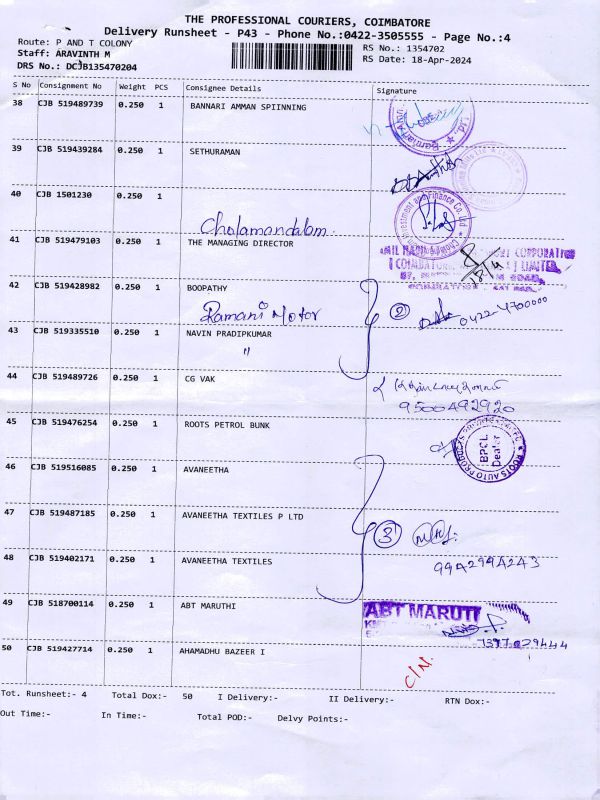 THE PROFESSIONAL COURIERS, COIMBATORE
Delivery Runsheet - P43 - Phone No.:0422-3505555 - Page No.:4
Route: P AND T COLONY
RS No.: 1354702
Staff: ARAVINTH M
RS Date: 18-Apr-2024
DRS No.: DCJB135470204
S No Consignment No Weight PCS Consignee Details Signature
38 CJB 519489739 0.250 1 BANNARI AMMAN SPIINNING
39 CJB 519439284 0.250 1 SETHURAMAN
40 CJB 1501230 0.250 1
Cholamandalam
41 CJB 519479103 0.250 1 THE MANAGING DIRECTOR
42 CJB 519428982 0.250 1 BOOPATHY
Ramani Motor
② 0422-4700000
43 CJB 519335510 0.250 1 NAVIN PRADIPKUMAR
"
44 CJB 519489726 0.250 1 CG VAK
9500492920
45 CJB 519476254 0.250 1 ROOTS PETROL BUNK
BPCL
Dealer
46 CJB 519516085 0.250 1 AVANEETHA
47 CJB 519487185 0.250 1 AVANEETHA TEXTILES P LTD
③
48 CJB 519402171 0.250 1 AVANEETHA TEXTILES
9942994243
49 CJB 518700114 0.250 1 ABT MARUTHI
ABT MARUTI
50 CJB 519427714 0.250 1 AHAMADHU BAZEER I
C/N.
Tot. Runsheet:- 4 Total Dox:- 50 I Delivery:- II Delivery:- RTN Dox:-
Out Time:- In Time:- Total POD:- Delvy Points:-